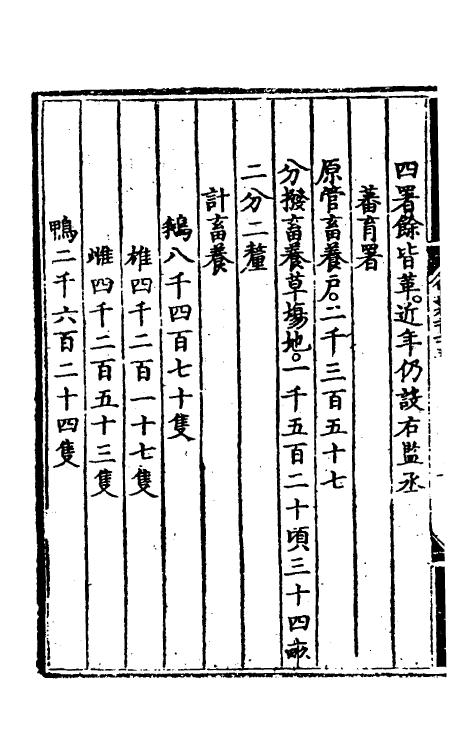 四署餘皆革。近年仍設右監丞
蕃育署
原管畜養戶。二千三百五十七
分撥畜養草塲地。一千五百二十頃三十四畝
二分二釐
計畜養
鵝八千四百七十隻
雄四千二百一十七隻
雌四千二百五十三隻
鴨二千六百二十四隻